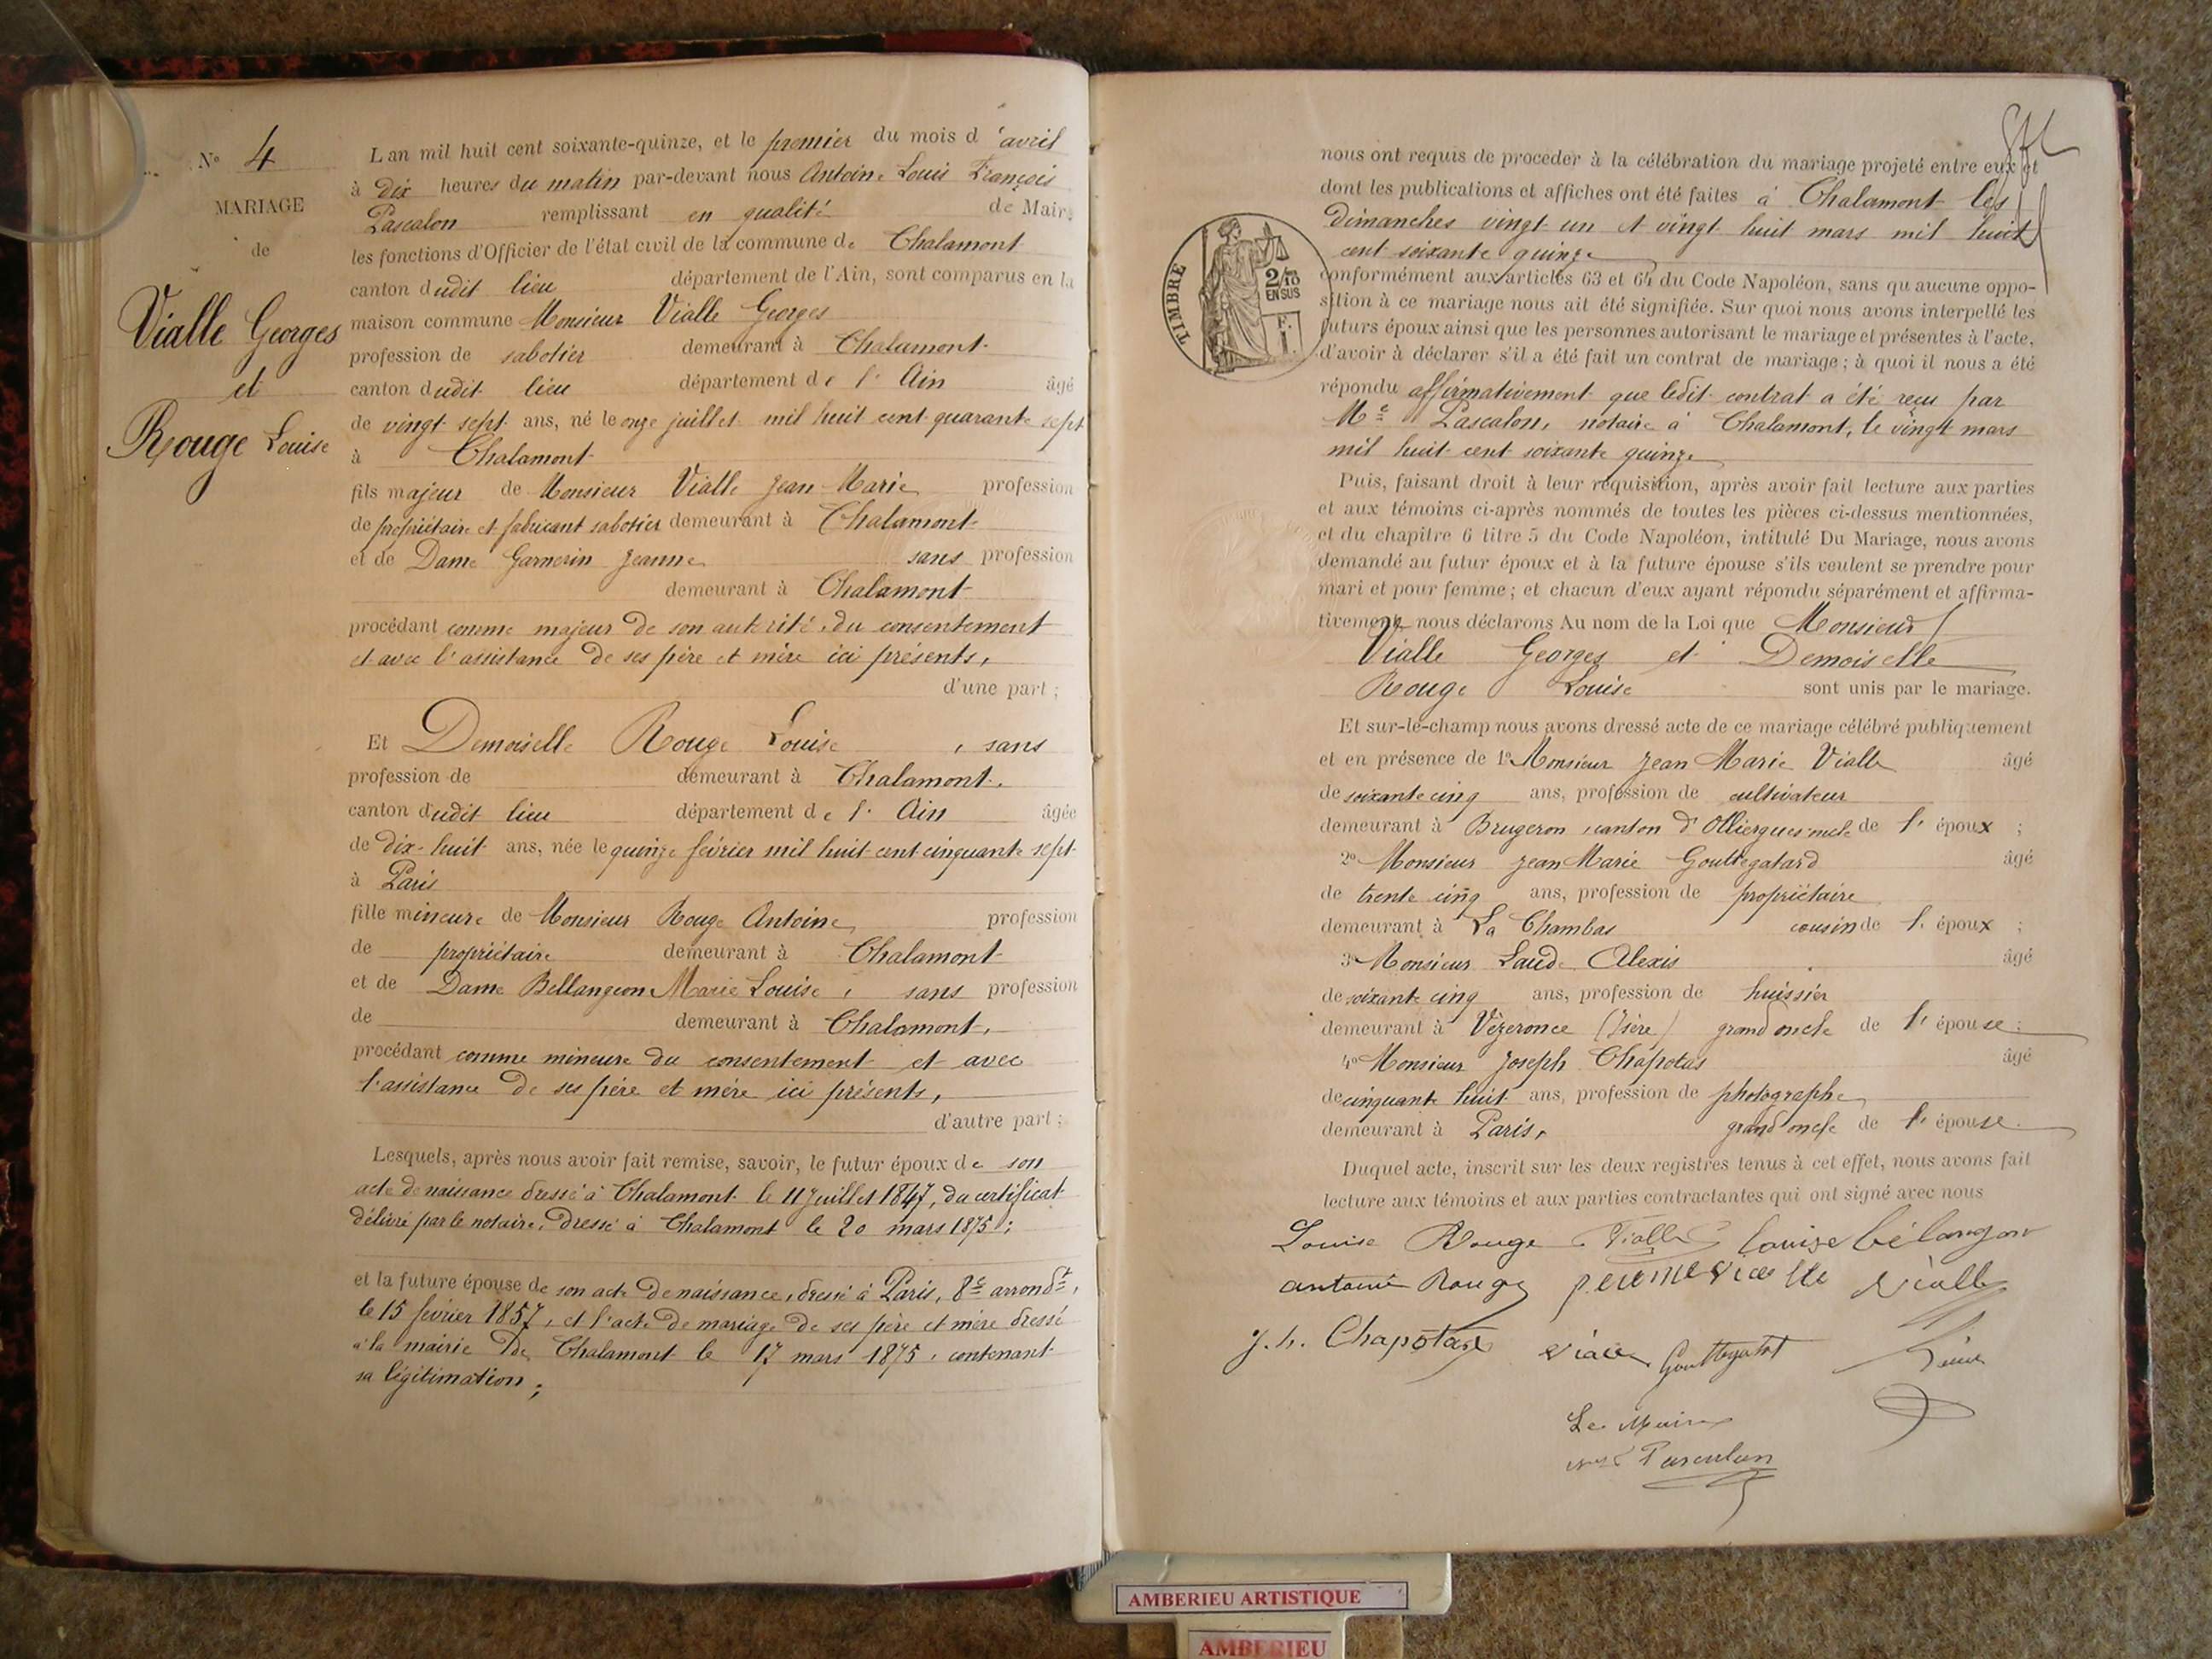 Nº 4
MARIAGE
de
Vialle Georges
et
Rouge Louise
L'an mil huit cent soixante-quinze, et le premier du mois d'avril
à dix heures du matin par-devant nous Antoine Louis François
Pascalon remplissant en qualité de Maire
les fonctions d'Officier de l'état civil de la commune de Chalamont
canton dudit lieu département de l'Ain, sont comparus en la
maison commune Monsieur Vialle Georges
profession de sabotier demeurant à Chalamont
canton dudit lieu département de l'Ain âgé
de vingt sept ans, né le onze juillet mil huit cent quarante sept
à Chalamont
fils majeur de Monsieur Vialle Jean Marie profession
de propriétaire et fabricant sabotier demeurant à Chalamont
et de Dame Garnerin Jeanne sans profession
demeurant à Chalamont
procédant comme majeur de son autorité, du consentement
et avec l'assistance de ses père et mère ici présents,
d'une part ;
Et Demoiselle Rouge Louise, sans
profession de demeurant à Chalamont.
canton dudit lieu département de l'Ain âgée
de dix-huit ans, née le quinze février mil huit cent cinquante sept
à Paris
fille mineure de Monsieur Rouge Antoine profession
de propriétaire demeurant à Chalamont
et de Dame Bellangeon Marie Louise, sans profession
de demeurant à Chalamont,
procédant comme mineure du consentement et avec
l'assistance de ses père et mère ici présents,
d'autre part ;
Lesquels, après nous avoir fait remise, savoir, le futur époux de son
acte de naissance dressé à Chalamont le 11 Juillet 1847, du certificat
délivré par le notaire, dressé à Chalamont le 20 mars 1875 ;
et la future épouse de son acte de naissance, dressé à Paris, 8e arrondt,
le 15 février 1857, et l'acte de mariage de ses père et mère dressé
à la mairie de Chalamont le 17 mars 1875, contenant
sa légitimation ;
nous ont requis de procéder à la célébration du mariage projeté entre eux et
dont les publications et affiches ont été faites à Chalamont les
dimanches vingt un et vingt huit mars mil huit
cent soixante quinze
conformément aux articles 63 et 64 du Code Napoléon, sans qu'aucune oppo-
sition à ce mariage nous ait été signifiée. Sur quoi nous avons interpellé les
futurs époux ainsi que les personnes autorisant le mariage et présentes à l'acte,
d'avoir à déclarer s'il a été fait un contrat de mariage ; à quoi il nous a été
répondu affirmativement que ledit contrat a été reçu par
Me Pascalon, notaire à Chalamont, le vingt mars
mil huit cent soixante quinze
TIMBRE
2/10
EN SUS
F.
1
Puis, faisant droit à leur réquisition, après avoir fait lecture aux parties
et aux témoins ci-après nommés de toutes les pièces ci-dessus mentionnées,
et du chapitre 6 titre 5 du Code Napoléon, intitulé Du Mariage, nous avons
demandé au futur époux et à la future épouse s'ils veulent se prendre pour
mari et pour femme ; et chacun d'eux ayant répondu séparément et affirma-
tivement, nous déclarons Au nom de la Loi que Monsieur
Vialle Georges et Demoiselle
Rouge Louise sont unis par le mariage.
Et sur-le-champ nous avons dressé acte de ce mariage célébré publiquement
et en présence de 1º Monsieur Jean Marie Vialle âgé
de soixante cinq ans, profession de cultivateur
demeurant à Brugeron, canton d'Olliergues oncle de l'époux ;
2º Monsieur Jean Marie Gouttegatard âgé
de trente cinq ans, profession de propriétaire
demeurant à La Chambas cousin de l'époux ;
3º Monsieur Laude Alexis âgé
de soixante cinq ans, profession de huissier
demeurant à Vézeronce (Isère) grand oncle de l'épouse ;
4º Monsieur Joseph Chapotas âgé
de cinquante huit ans, profession de photographe
demeurant à Paris, grand oncle de l'épouse.
Duquel acte, inscrit sur les deux registres tenus à cet effet, nous avons fait
lecture aux témoins et aux parties contractantes qui ont signé avec nous
Louise Rouge Vialle Louise bélangon
antoine Rouge Vialle
J. h. Chapotas Gouttegatat
Le Maire
Pascalon
AMBERIEU ARTISTIQUE
AMBERIEU